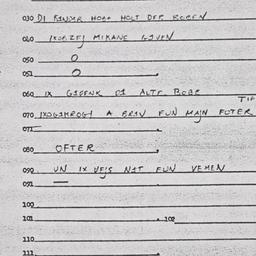 030 DI KINDER HOBN HOLT DER BOBEN
040 IX MIKANE GIVEN
050 O
051 O
060 IX GIDENK DI ALTE BOBE
TIF
070 A BRIV FUN MAJN FOTER
071
080 OFTER
090 UN IX VEJS NIT FUN VEMEN
091 —
100
101 102
110
111